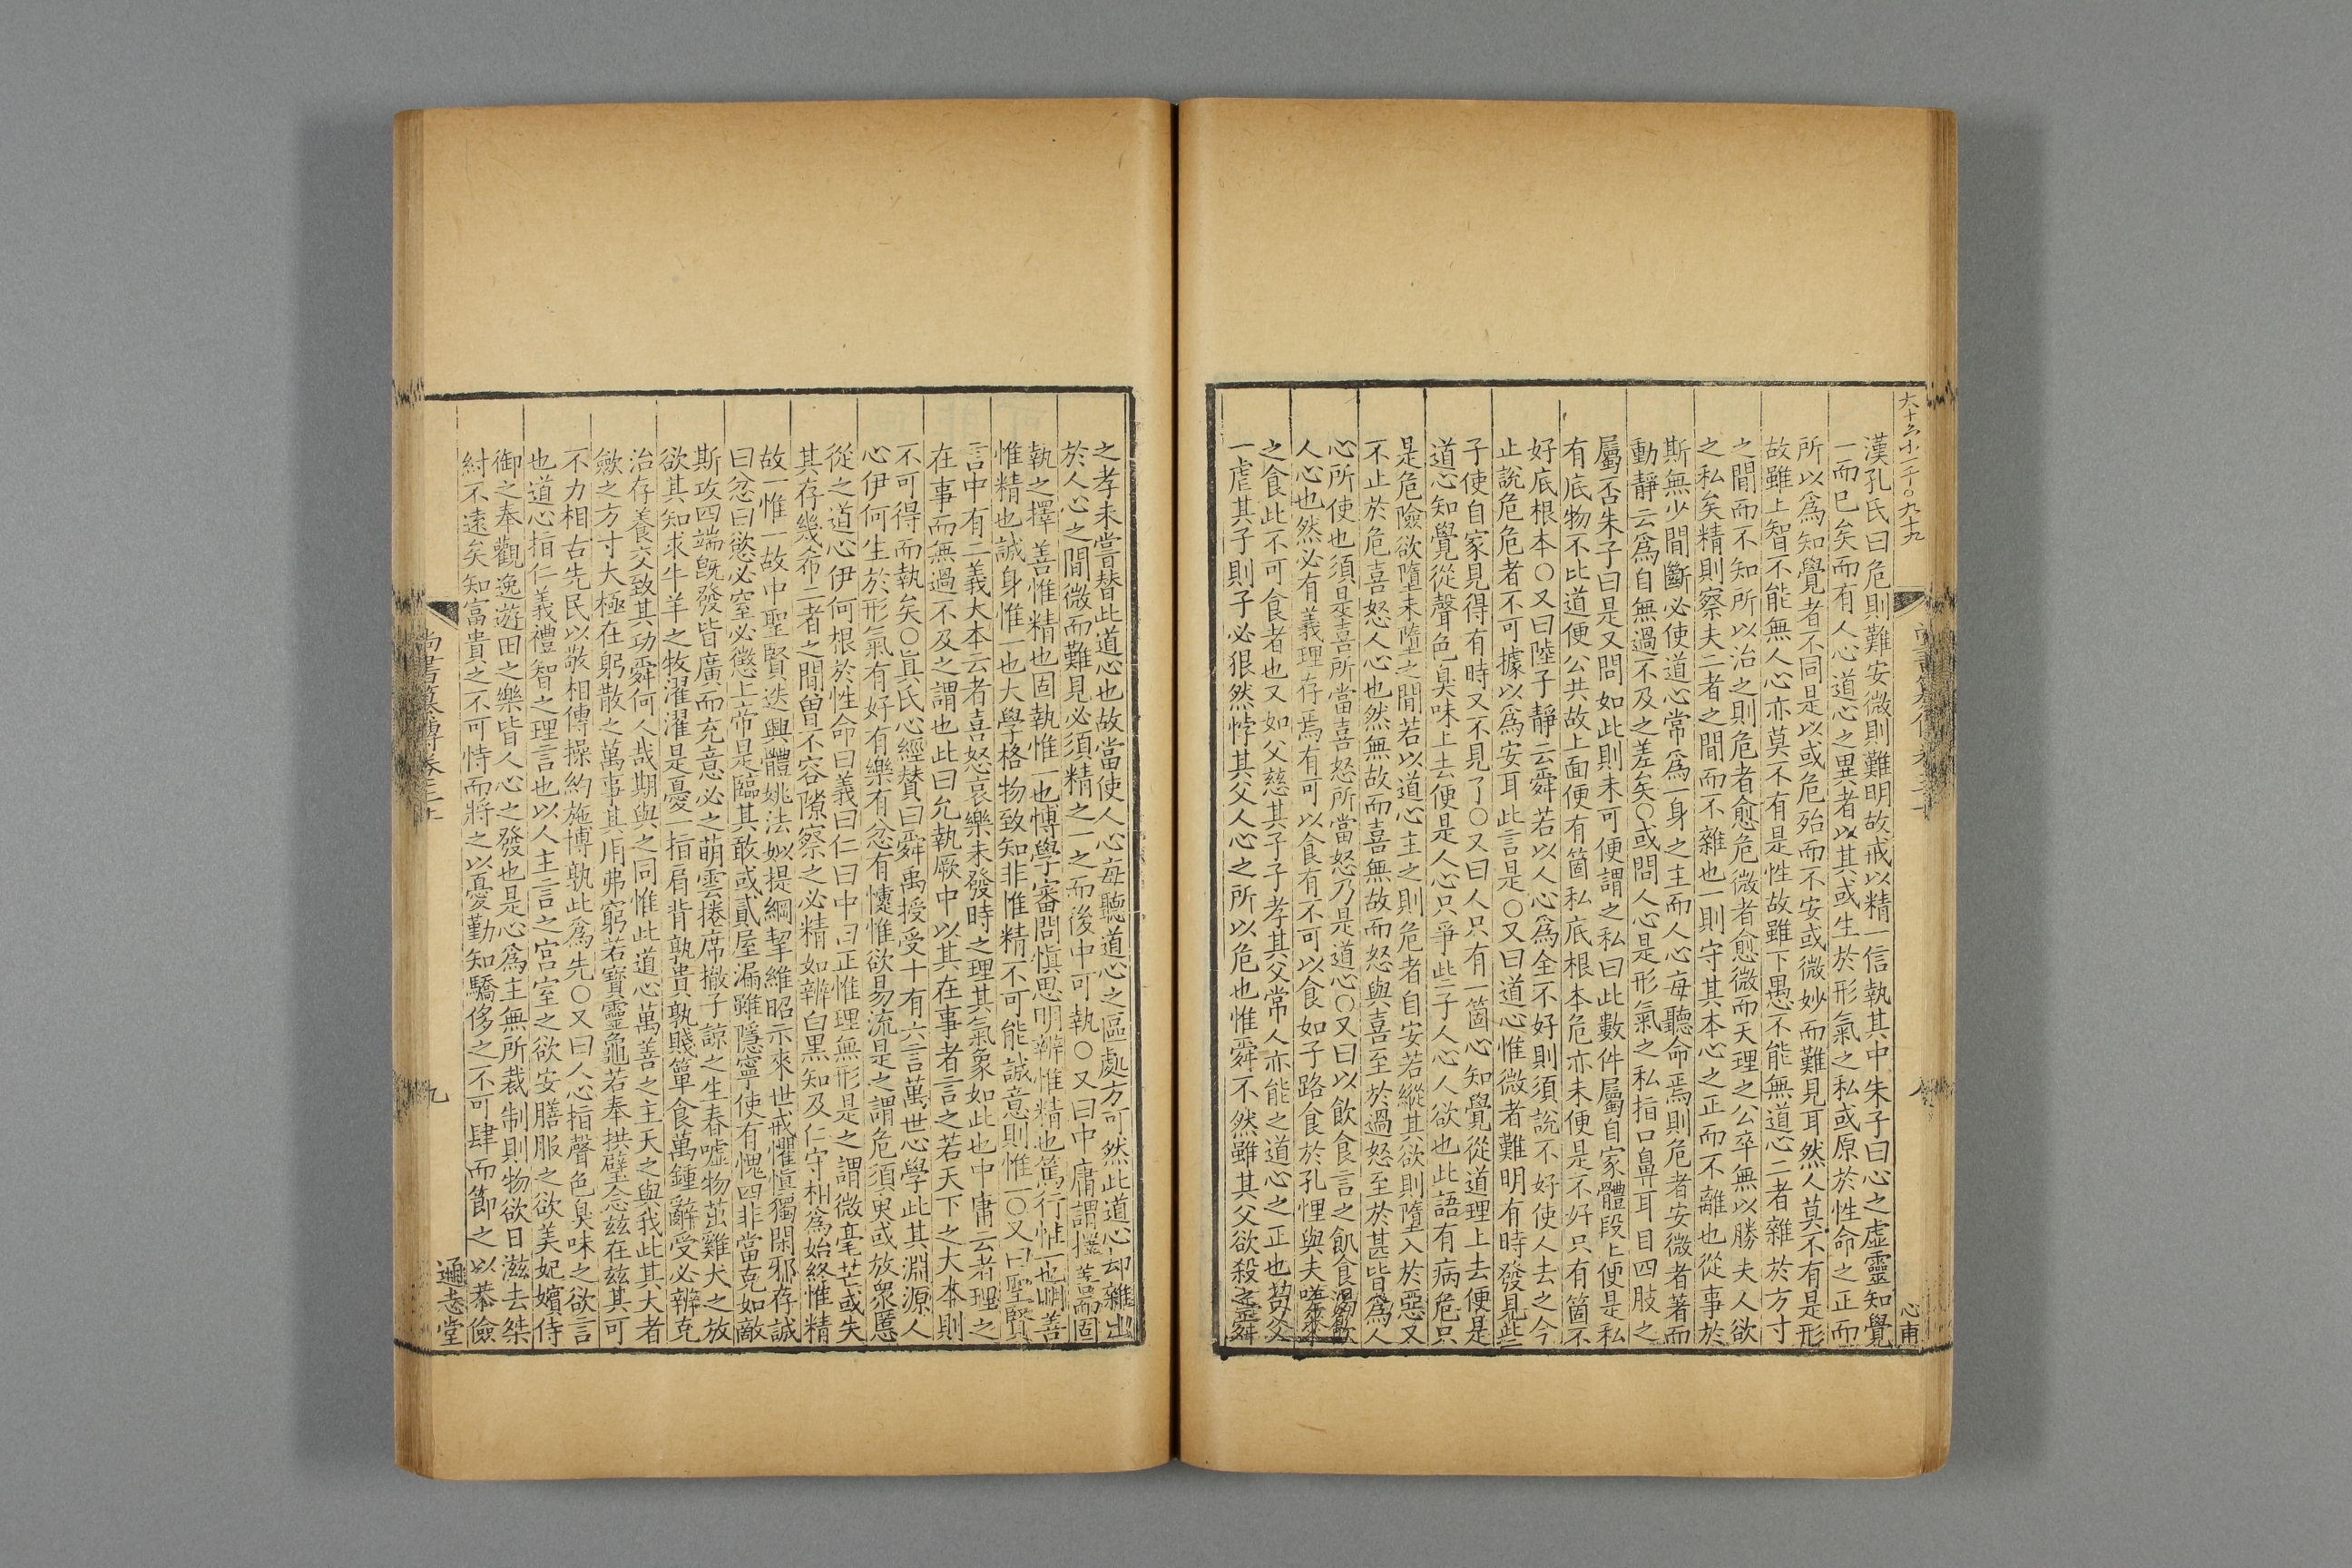 大十六小一千〇九十九
心甫
漢孔氏曰危則難安微則難明故戒以精一信執其中朱子曰心之虛靈知覺
一而已矣而有人心道心之異者以其或生於形氣之私或原於性命之正而
所以爲知覺者不同是以或危殆而不安或微妙而難見耳然人莫不有是形
故雖上智不能無人心亦莫不有是性故雖下愚不能無道心二者雜於方寸
之間而不知所以治之則危者愈危微者愈微而天理之公卒無以勝夫人欲
之私矣精則察夫二者之間而不雜也一則守其本心之正而不離也從事於
斯無少間斷必使道心常爲一身之主而人心每聽命焉則危者安微者著而
動靜云爲自無過不及之差矣○或問人心是形氣之私指口鼻耳目四肢之
屬否朱子曰是又問如此則未可便謂之私曰此數件屬自家體段上便是私
有底物不比道便公共故上面便有箇私底根本危亦未便是不好只有箇不
好底根本○又曰陸子靜云舜若以人心爲全不好則須說不好使人去之今
止說危危者不可據以爲安耳此言是○又曰道心惟微者難明有時發見些
子使自家見得有時又不見了○又曰人只有一箇心知覺從道理上去便是
道心知覺從聲色臭味上去便是人心只爭些子人心人欲也此語有病危只
是危險欲墮未墮之間若以道心主之則危者自安若縱其欲則墮入於惡又
不止於危喜怒人心也然無故而喜無故而怒與喜至於過怒至於甚皆爲人
心所使也須是喜所當喜怒所當怒乃是道心○又曰以飲食言之飢食渴飲
人心也然必有義理存焉有可以食有不可以食如子路食於孔悝與夫嗟來
之食此不可食者也又如父慈其子子孝其父常人亦能之道心之正也苟父
一虐其子則子必狠然悖其父人心之所以危也惟舜不然雖其父欲殺之舜
之孝未嘗替此道心也故當使人心每聽道心之區處方可然此道心却雜出
於人心之間微而難見必須精之一之而後中可執○又曰中庸謂擇善而固
執之擇善惟精也固執惟一也博學審問愼思明辨惟精也篤行惟一也明善
惟精也誠身惟一也大學格物致知非惟精不可能誠意則惟一○又曰聖賢
言中有二義大本云者喜怒哀樂未發時之理其氣象如此也中庸云者理之
在事而無過不及之謂也此曰允執厥中以其在事者言之若天下之大本則
不可得而執矣○眞氏心經贊曰舜禹授受十有六言萬世心學此其淵源人
心伊何生於形氣有好有樂有忿有懥惟欲易流是之謂危須臾或放衆慝
從之道心伊何根於性命曰義曰仁曰中曰正惟理無形是之謂微毫芒或失
其存幾希二者之間曾不容隙察之必精如辨白黑知及仁守相爲始終惟精
故一惟一故中聖賢迭興體姚法姒提綱挈維昭示來世戒懼愼獨閑邪存誠
曰忿曰慾必窒必懲上帝是臨其敢或貳屋漏雖隱寧使有愧四非當克如敵
斯攻四端旣發皆廣而充意必之萌雲捲席撤子諒之生春噓物茁雞犬之放
欲其知求牛羊之牧濯濯是憂一指肩背孰貴孰賤簞食萬鍾辭受必辨克
治存養交致其功舜何人哉期與之同惟此道心萬善之主天之與我此其大者
斂之方寸大極在躬散之萬事其用弗窮若寶靈龜若奉拱璧念茲在茲其可
不力相古先民以敬相傳操約施博孰此爲先○又曰人心指聲色臭味之欲言
也道心指仁義禮智之理言也以人主言之宮室之欲安膳服之欲美妃嬪侍
御之奉觀逸遊田之樂皆人心之發也是心爲主無所裁制則物欲日滋去桀
紂不遠矣知富貴之不可恃而將之以憂勤知驕侈之不可肆而節之以恭儉
尚書纂傳卷三十
九
通志堂